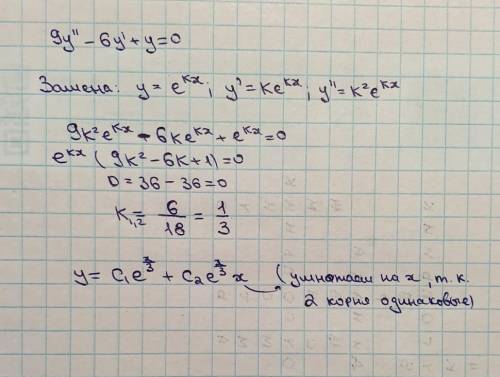 9y'' - 6y' + y = 0
Замена: y = e^{kx}; y' = ke^{kx}; y'' = k²e^{kx}
9k²e^{kx} - 6ke^{kx} + e^{kx} = 0
e^{kx} (9k² - 6k + 1) = 0
D = 36 - 36 = 0
k_{1,2} = 6/18 = 1/3
y = C₁e^{x/3} + C₂e^{x/3} x (умножаем на x, т.к.
2 корня одинаковые)